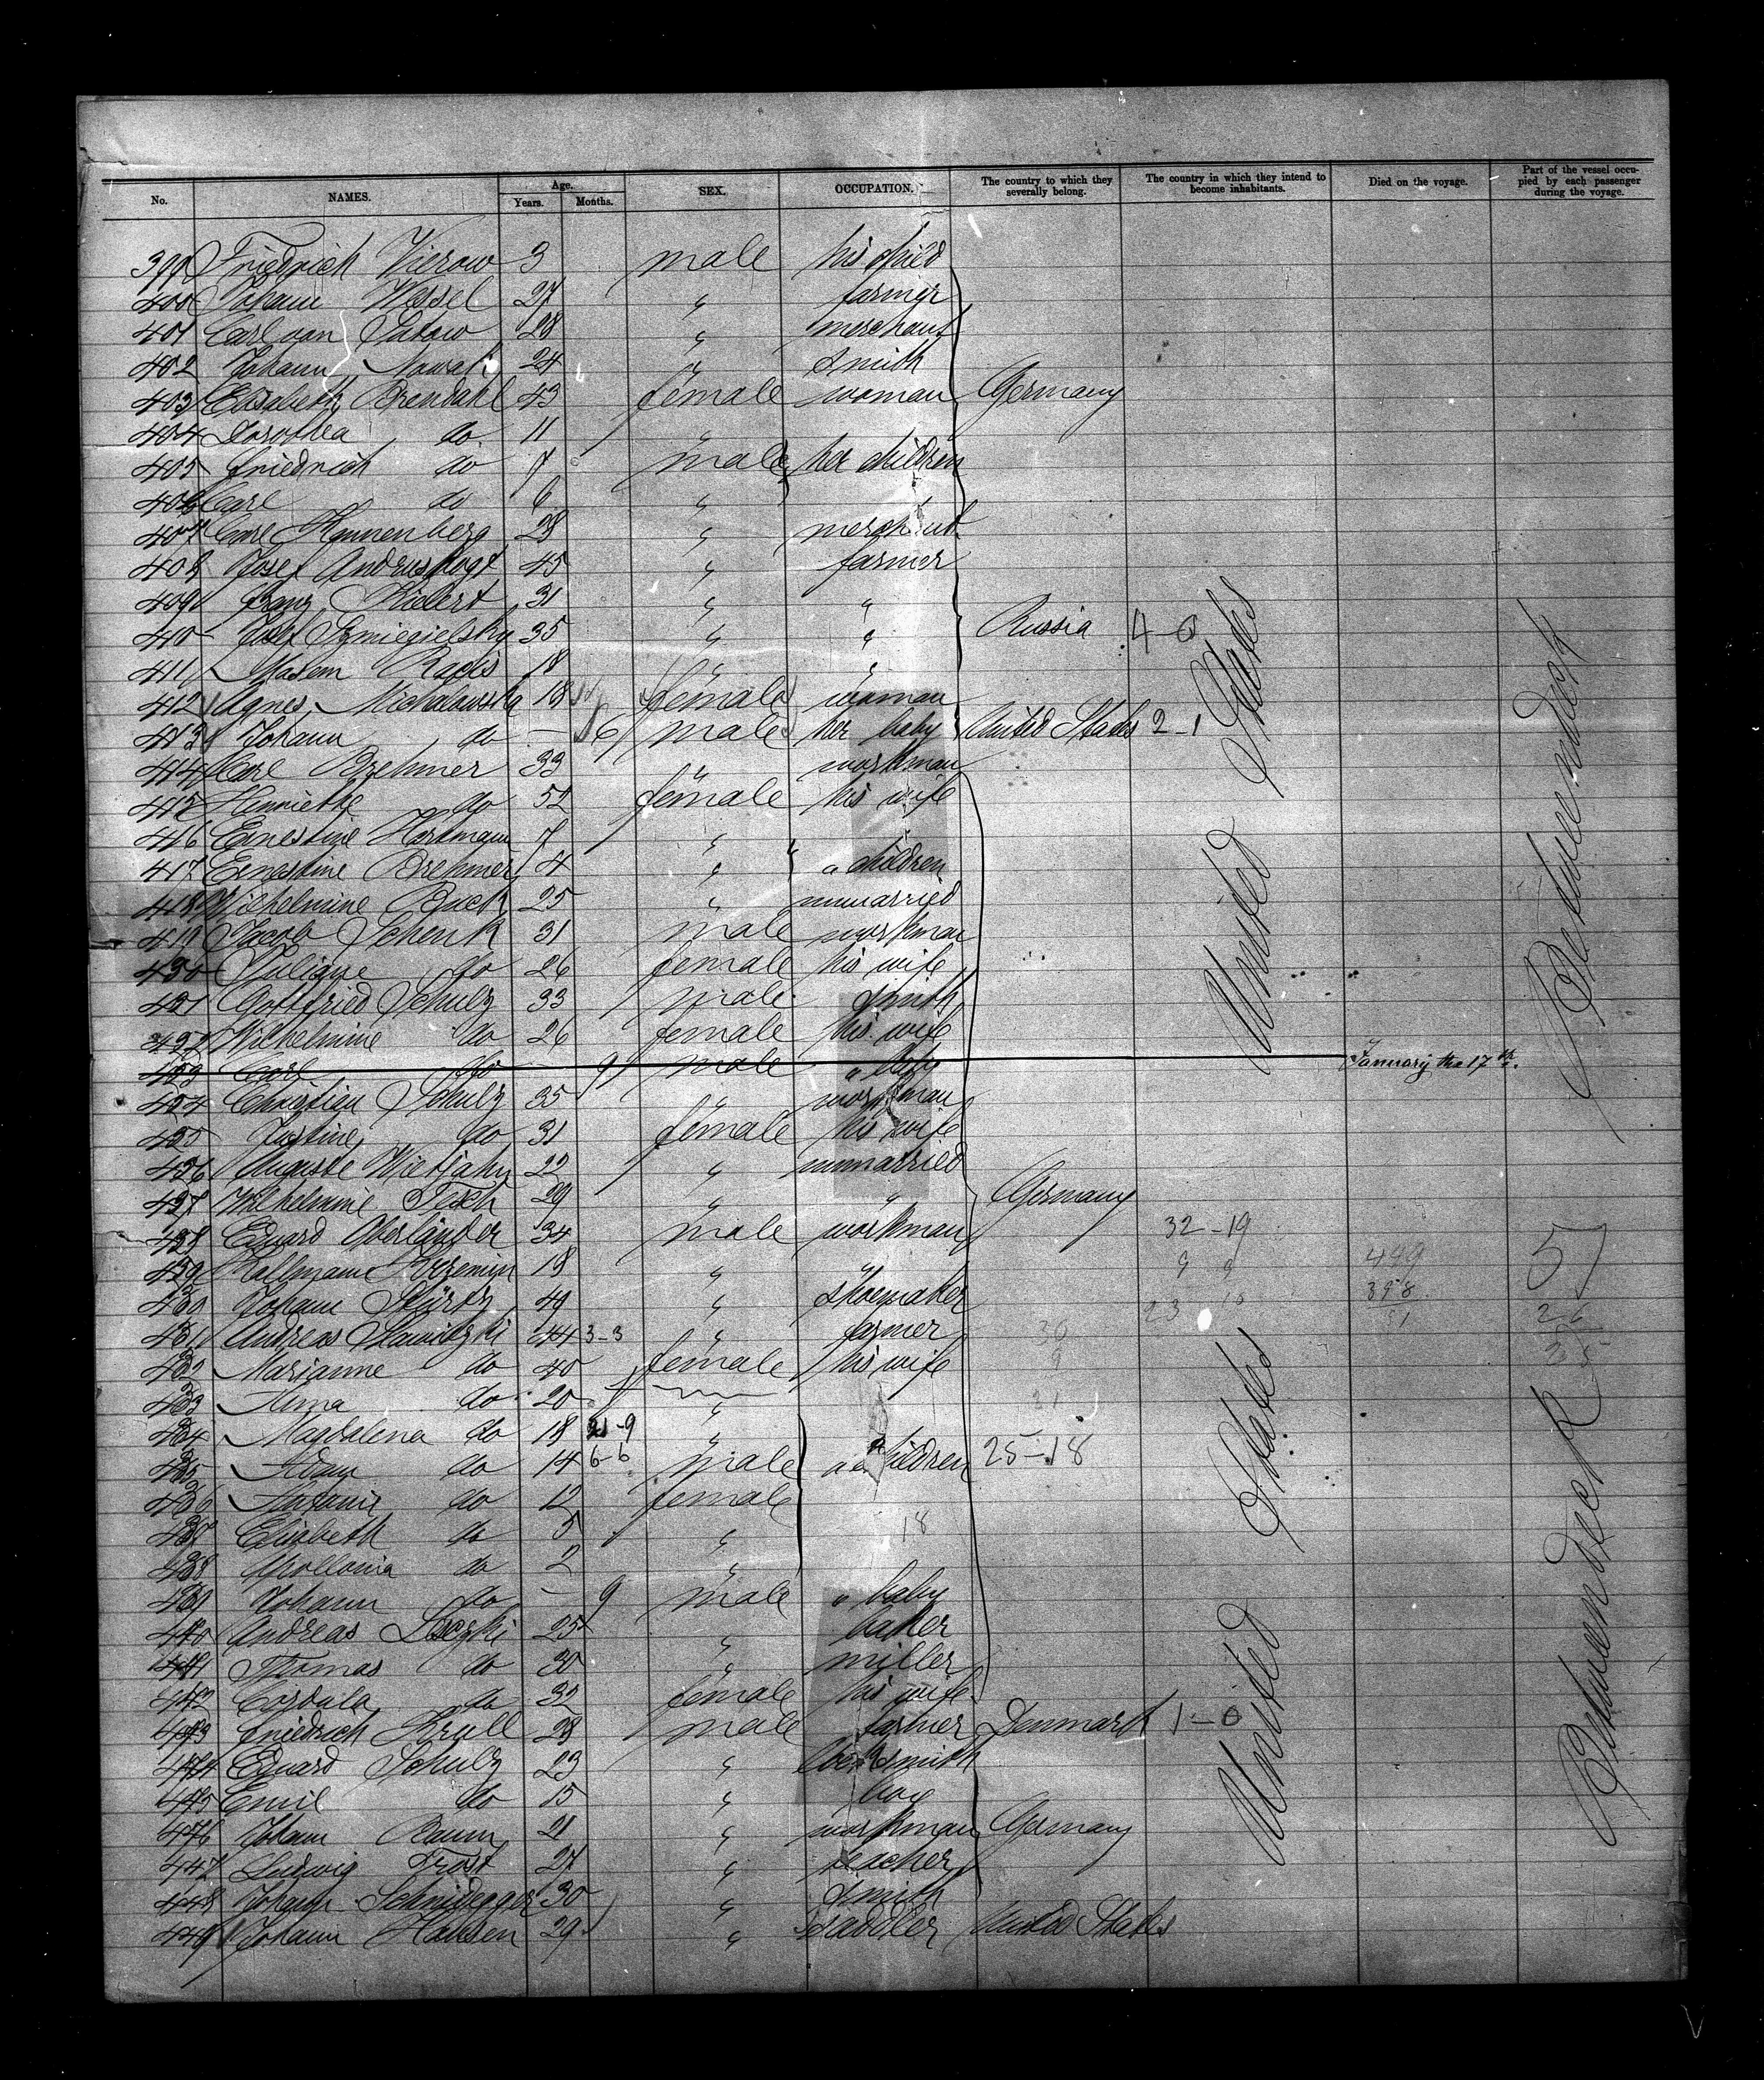 No. NAMES. Age. Years. Months. SEX. OCCUPATION. The country to which they severally belong. The country in which they intend to become inhabitants. Died on the voyage. Part of the vessel occupied by each passenger during the voyage.
399 Friedrich Vierow 3 male his child
400 Johann Wessel 27 " farmer
401 Carl von 28 " merchant
402 Johann Nowak 24 " smith
403 Elisabeth Brendahl 43 female woman Germany
404 Dorothea do 11 "
405 Friedrich do 7 male her children
406 Carl do 6 "
407 Carl Hannenberg 28 " merchant
408 Josef 45 " farmer
409 Franz 31 " "
410 Josef 35 " " Russia 4-0
411 18 " "
412 Agnes Michalowska 18 female woman
413 Johann do — 6 male her baby United States 2-1
414 Carl Brehmer 33 " workman
415 Henriette do 52 female his wife
416 Ernestine Hartmann 7 "
417 Ernestine Brehmer 4 " " children
418 Wilhelmine Buck 25 " unmarried
419 Jacob Schenk 31 male workman
420 Juliane do 26 female his wife
421 Gottfried Schulz 33 male smith
422 Wilhelmine do 26 female his wife
423 Carl do 9 male " baby January the 17th.
424 Christian Schulz 35 " workman
425 Justine do 31 female his wife
426 Auguste 22 " unmarried
427 Wilhelmine Tesch 29 " " Germany
428 Eduard Oberländer 34 male workman 32-19
429 18 " " 9 9 449
430 Johann 49 " shoemaker 23 10 398
431 Andreas 44 3-3 " farmer 51 26
432 Marianne do 40 female his wife 25
433 do 20 "
434 Magdalena do 18 21-9 "
435 Adam do 14 6-6 male " children 25-18
436 do 12 female
437 Elisabeth do 5 " 18
438 do 2 "
439 Johann do — 9 male " baby
440 Andreas 25 " baker
441 Thomas do 30 " miller
442 Cordula do 32 female his wife
443 Friedrich Krull 28 male farmer Denmark 1-0
444 Eduard Schulz 23 " locksmith
445 Emil do 15 " boy
446 Johann Baum 21 " workman Germany
447 Ludwig Frost 27 " teacher
448 Johann Schnidegger 30 " smith
449 Johann Hansen 29 " saddler United States
United States
United States
Between deck
57
Between deck